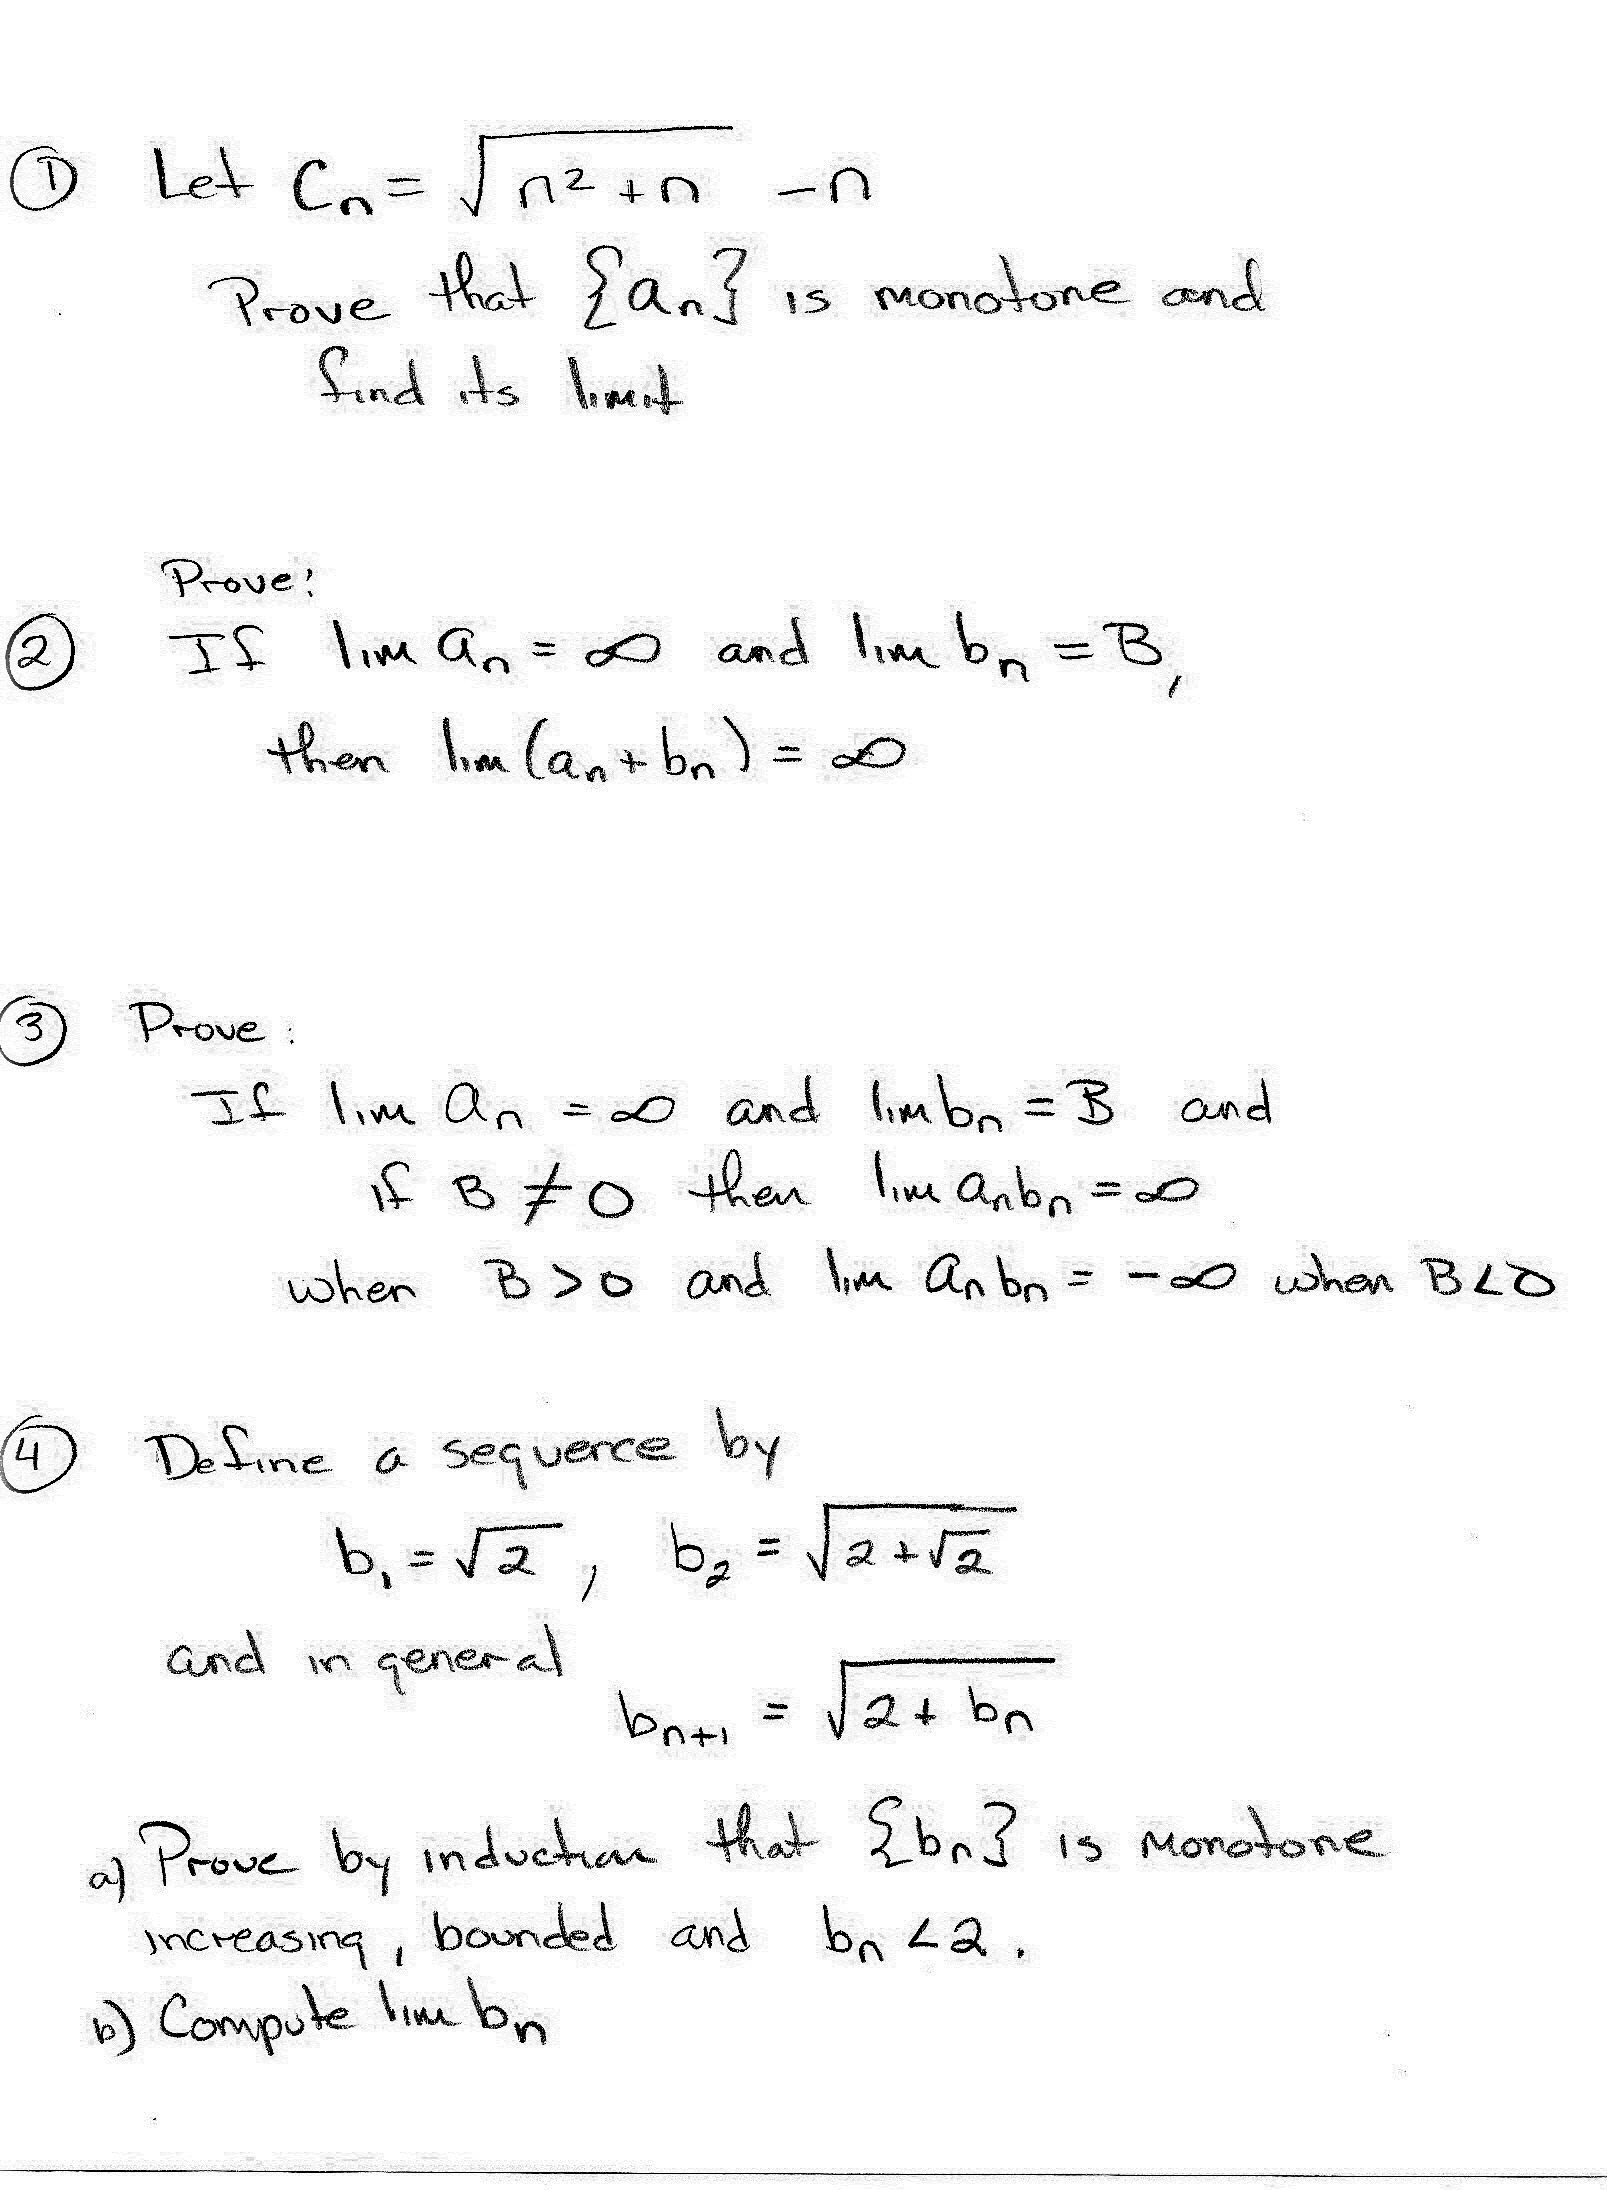 ① Let Cₙ = √(n² + n) - n
Prove that {aₙ} is monotone and
find its limit
Prove:
② If lim aₙ = ∞ and lim bₙ = B,
then lim (aₙ + bₙ) = ∞
③ Prove:
If lim aₙ = ∞ and lim bₙ = B and
if B ≠ 0 then lim aₙbₙ = ∞
when B > 0 and lim aₙbₙ = -∞ when B < 0
④ Define a sequence by
b₁ = √2, b₂ = √(2 + √2)
and in general
bₙ₊₁ = √(2 + bₙ)
a) Prove by induction that {bₙ} is monotone
increasing, bounded and bₙ < 2.
b) Compute lim bₙ